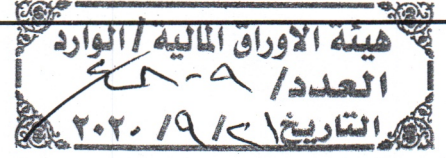 هيئة الاوراق المالية / الوارد
العدد/
التاريخ ٢١/ ٩/ ٢٠٢٠